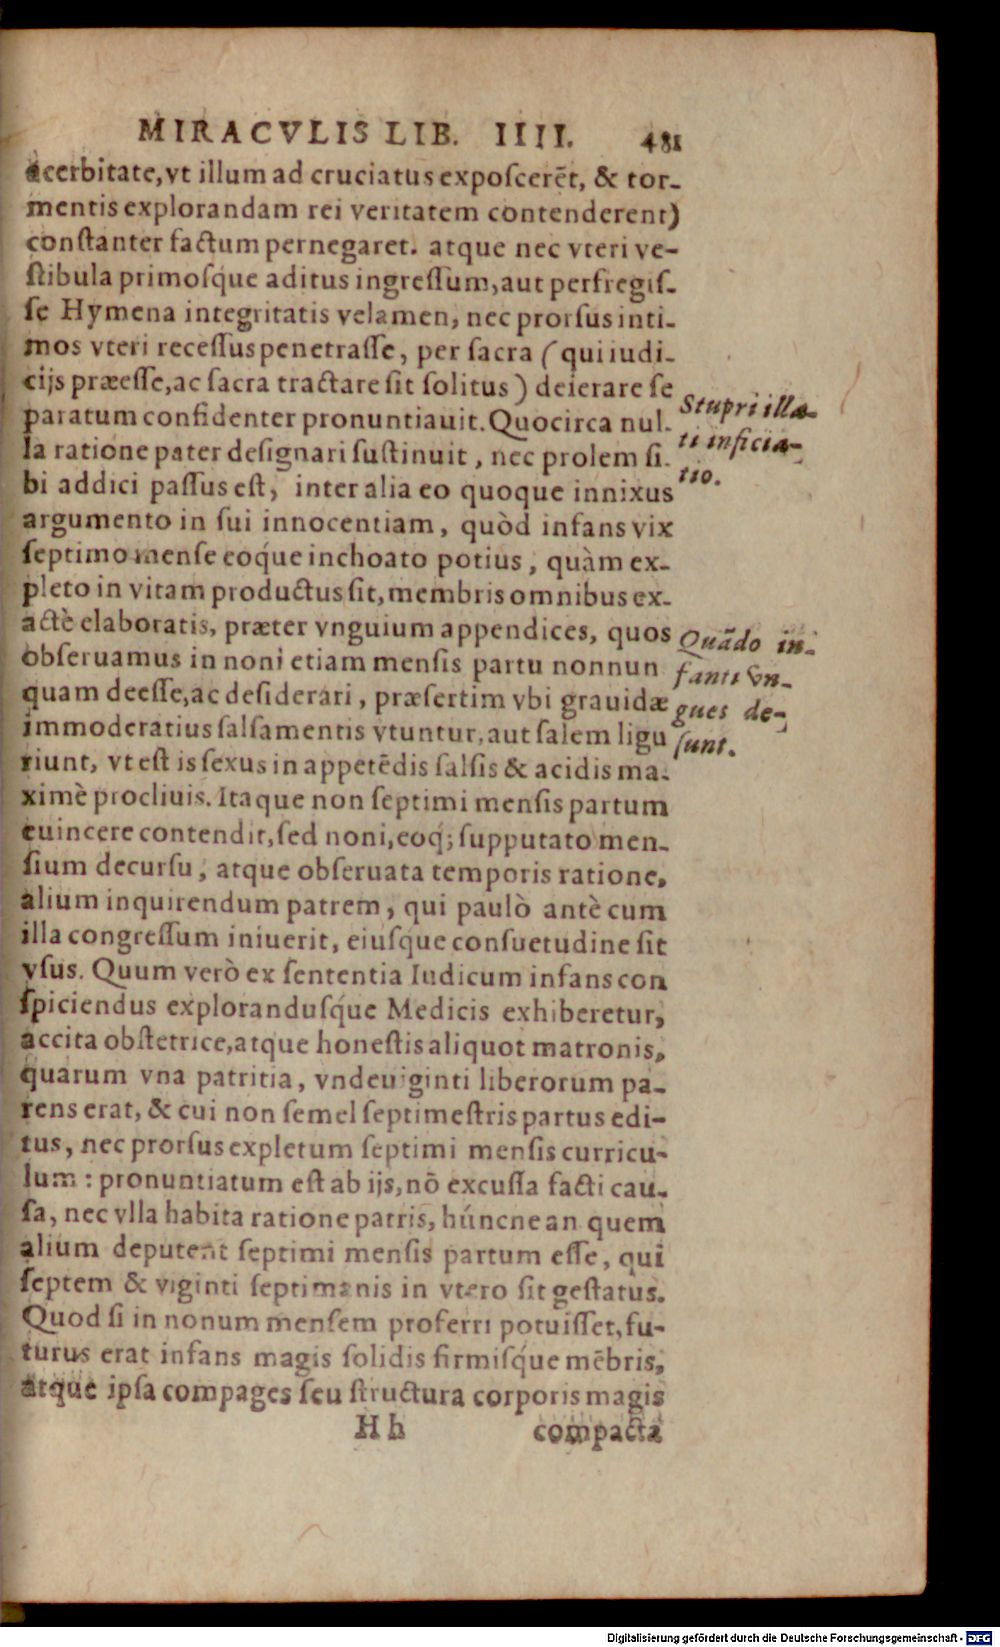 MIRACVLIS LIB. IIII. 481
acerbitate, vt illum ad cruciatus exposcerēt, & tor-
mentis explorandam rei veritatem contenderent)
constanter factum pernegaret. atque nec vteri ve-
stibula primosque aditus ingressum, aut perfregis-
se Hymena integritatis velamen, nec prorsus inti-
mos vteri recessus penetrasse, per sacra (qui iudi-
cijs præesse, ac sacra tractare sit solitus) deierare se
paratum confidenter pronuntiauit. Quocirca nul-
la ratione pater designari sustinuit, nec prolem si-
bi addici passus est, inter alia eo quoque innixus
argumento in sui innocentiam, quòd infans vix
septimo mense eoq́ue inchoato potius, quàm ex-
pleto in vitam productus sit, membris omnibus ex-
actè elaboratis, præter vnguium appendices, quos
obseruamus in noni etiam mensis partu nonnun
quam deesse, ac desiderari, præsertim vbi grauidæ
immoderatius salsamentis vtuntur, aut salem ligu
riunt, vt est is sexus in appetēdis salsis & acidis ma-
ximè procliuis. Itaque non septimi mensis partum
euincere contendit, sed noni, eoq́; supputato men-
sium decursu, atque obseruata temporis ratione,
alium inquirendum patrem, qui paulò antè cum
illa congressum iniuerit, eiusque consuetudine sit
vsus. Quum verò ex sententia Iudicum infans con
spiciendus explorandusq́ue Medicis exhiberetur,
accita obstetrice, atque honestis aliquot matronis,
quarum vna patritia, vndeuiginti liberorum pa-
rens erat, & cui non semel septimestris partus edi-
tus, nec prorsus expletum septimi mensis curricu-
lum: pronuntiatum est ab ijs, nō excussa facti cau-
sa, nec vlla habita ratione patris, húncne an quem
alium deputent septimi mensis partum esse, qui
septem & viginti septimanis in vtero sit gestatus.
Quod si in nonum mensem proferri potuisset, fu-
turus erat infans magis solidis firmisq́ue mēbris,
atque ipsa compages seu structura corporis magis
H h compacta
Stupri illa-
ti inficia-
tio.
Quādo in-
fanti vn-
gues de-
sunt.
Digitalisierung gefördert durch die Deutsche Forschungsgemeinschaft - DFG